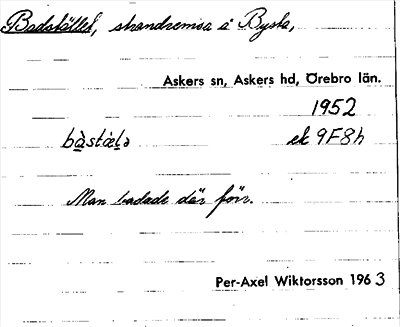 Badstället, strandremsa å Bysta,
Askers sn, Askers hd, Örebro län.
1952
bàstæ̀lə ek 9F8h
Man badade där förr.
Per-Axel Wiktorsson 1963